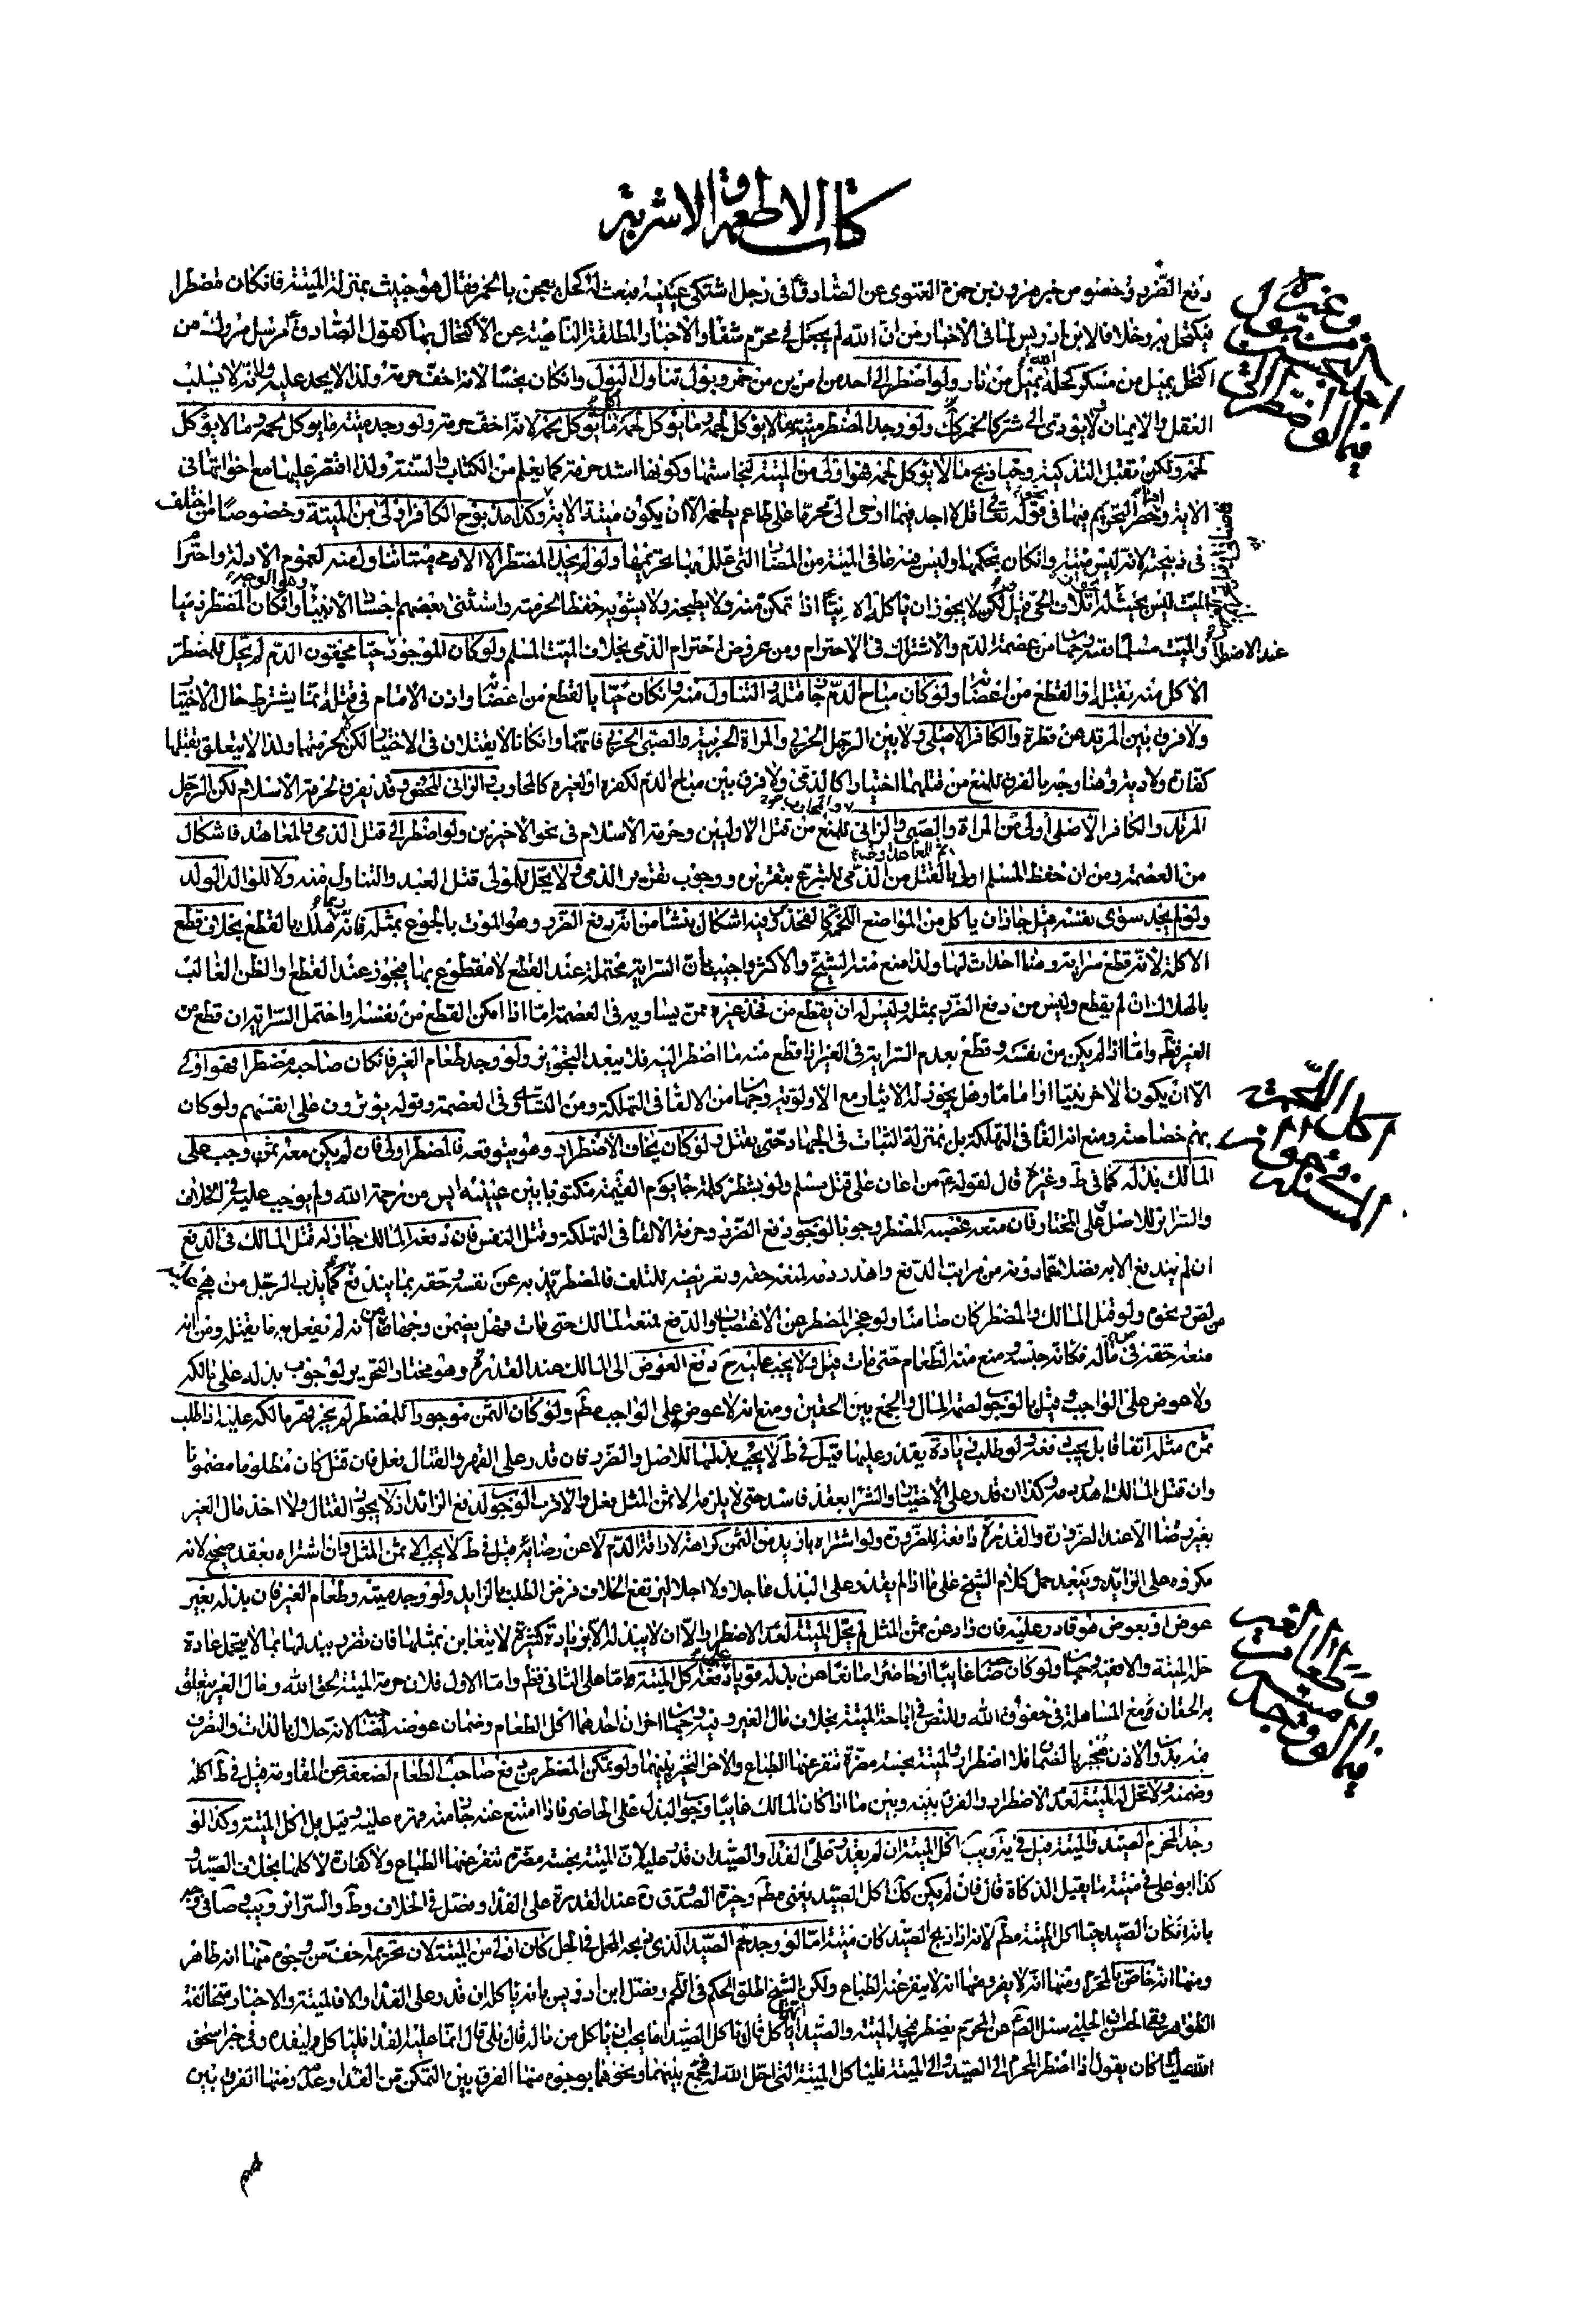 كتاب الاطعمة والاشربة
دفع الضرر وخصوص خبر هرون بن حمزة الغنوى عن الصادق ع فى رجل اشتكى عينيه فبعث له كحل يعجن بالخمر فقال هو خبيث بمنزلة الميتة فان كان مضطرا
فيكتحل به وخلافا لابن ادريس لما فى الاخبار من ان الله لم يجعل فى محرم شفاء والاخبار المطلقة الناهية عن الاكتحال بها كقول الصادق ع فى مرسل مروك من
اكتحل بميل من مسكر كحله الله بميل من نار ولو اضطر الى احد من امرين من خمر وبول تناول البول وان كان نجسا لانه اخف حرمة ولذا لا يحد عليه ولانه لا يسلب
العقل والايمان ولا يؤدى الى شر كالخمر ولو وجد المضطر ميتة ما لا يؤكل لحمه وما يؤكل لحمه اكل ما يؤكل لحمه لانه اخف حرمة ولو وجد ميتة ما يؤكل لحمه وما لا يؤكل
لحمه ولكن تقبل التذكية وحيا ذبح ما لا يؤكل لحمه فهو اولى من الميتة لنجاستها وكونها اشد حرمة كما يعلم من الكتاب والسنة ولذا اقتصر عليها مع اخواتها فى
الاية وحصر التحريم فيها فى قوله تعالى قل لا اجد فيما اوحى الى محرما على طاعم يطعمه الا ان يكون ميتة الاية وكذا مذبوح الكافر اولى من الميتة وخصوصا من اختلف
فى ذبيحته لانه ليس ميتة وان كان بحكمها وليس فيه ما فى الميتة من المضار التى علل بها تحريمها ولو لم يجد المضطر الا الادمى ميتا تناول منه لعموم الادلة واحترام
الميت ليس بحيث له اتلاف الحى قيل لكن لا يجوز ان ياكله الا نيئا اذا تمكن منه ولا يطبخه ولا يشويه حفظا لحرمته واستثنى بعضهم اجساد الانبياء وان كان المضطر ذميا
والميت مسلما ففيه وجهان من عصمة الدم والاشتراك فى الاحترام ومن عروض احترام الذمى بخلاف الميت المسلم ولو كان الموجود حيا محقون الدم لم يحل للمضطر
الاكل منه بقتله او القطع من اعضائه ولو كان مباح الدم جاز قتله والتناول منه وان كان حيا بالقطع من اعضائه واذن الامام فى قتله انما يشترط حال الاختيار
ولا فرق بين المرتد عن فطرة والكافر الاصلى ولا بين الرجل الحربى والمراة الحربية والصبى الحربى فانهما وان كانا لا يقتلان فى الاختيار لكن لا لحرمتهما ولذا لا يتعلق بقتلهما
كفارة ولا دية وهنا وجه بالفرق للمنع من قتلهما اختيارا كالذمى ولا فرق بين مباح الدم لكفره او لغيره كالمحارب والزانى المحصن وقد يفرق لحرمة الاسلام لكن الرجل
المرتد والكافر الاصلى اولى من المراة والصبى والزانى للمنع من قتل الاوليين وحرمة الاسلام فى نحو الاخيرين ولو اضطر الى قتل الذمى والمعاهد فاشكال
من العصمة ومن ان حفظ المسلم اولى بالقتل من الذمى للشرع بتقريره ووجوب تقرير الذمى ولا يحل للمولى قتل العبد والتناول منه ولا للوالد الولد
ولو لم يجد سوى نفسه قيل جاز ان ياكل من المواضع اللحمة كالفخذ وفيه اشكال ينشأ من انه دفع الضرر وهو الموت بالجوع بمثله فانه ربما هلك بالقطع بخلاف قطع
الاكلة لانه قطع سراية وهنا احداث لها ولذا منع منه الشيخ والاكثر واجيب بان السراية محتملة عند القطع لا مقطوع بها فيجوز عند القطع والظن الغالب
بالهلاك ان لم يقطع وليس من دفع الضرر بمثله وليس له ان يقطع من فخذ غيره ممن يساويه فى العصمة اما اذا امكن القطع من نفسه واحتمل السراية ان قطع من
الغير فظ واما اذا لم يكن من نفسه وقطع بعدم السراية فى الغير اذا قطع منه ما اضطر اليه فلا يبعد التجويز ولو وجد طعام الغير فان كان صاحبه مضطرا فهو اولى
الا ان يكون الاخر نبيا او اماما وهل يجوز له الايثار مع الاولوية وجهان من الالقاء فى التهلكة ومن التساوى فى العصمة وقوله يؤثرون على انفسهم ولو كان
بهم خصاصة ومنع انه القاء فى التهلكة بل بمنزلة الثبات فى الجهاد حتى يقتل ولو كان يخاف الاضطرار وهو يتوقعه فالمضطر اولى فان لم يكن معه ثمن وجب على
المالك بذله كما فى ط وغيره قال لقوله ع من اعان على قتل مسلم ولو بشطر كلمة جاء يوم القيمة مكتوبا بين عينيه ايس من رحمة الله ولم يوجب عليه فى الخلاف
والسرائر للاصل على المختار فان منعه غصبه المضطر وجوبا لوجوب دفع الضرر وحرمة الالقاء فى التهلكة وقتل النفس فان دفعه المالك جاز له قتل المالك فى الدفع
ان لم يندفع الا به فضلا عما دونه من مراتب الدفع واهدر دمه لمنعه حقه وتعريضه للتلف فالمضطر يذب عن نفسه وحقه بما يندفع كما يذب الرجل من هجم عليه
من لص ونحوه ولو قتل المالك المضطر كان ضامنا ولو عجز المضطر عن الاغتصاب والدفع فمنعه المالك حتى مات فهل يضمن وجهان من انه لم يفعل به ما يقتله ومن انه
منعه حقه فى ماله فكانه حبسه ومنع منه الطعام حتى مات قيل ولا يجب عليه ح دفع العوض الى المالك عند القدرة وهو مختار التحرير لوجوب بذله على مالكه
ولا عوض على الواجب وقيل بالوجوب لعصمة المال والجمع بين الحقين ومنع انه لا عوض على الواجب مطم ولو كان الثمن موجودا للمضطر لم يجز قهر مالكه عليه اذا طلب
ثمن مثله اتفاقا بل يجب دفعه ولو طلب زيادة يقدر عليها قيل فى ط لا يجب بذلها للاصل والضرر فان قدر على القهر والقتال فعل فان قتل كان مظلوما مضمونا
وان قتل المالك اهدر دمه وكذا ان قدر على الاحتيال والشراء بعقد فاسد حتى لا يلزمه الا ثمن المثل فعل والاقرب الوجوب لدفع الزائد اذ لا يجوز القتال ولا اخذ مال الغير
بغير رضاه الا عند الضرورة والقدرة دافعة للضرورة ولو اشتراه بازيد من الثمن كراهة لاراقة الدم لا عن رضا به قيل فى ط لا يجب الا ثمن المثل وان اشتراه بعقد صحيح لانه
مكروه على الزايد ويبعد حمل كلام الشيخ على ما اذا لم يقدر على البذل عاجلا ولا اجلا ليرتفع الخلاف فرض الطلب بالزايد ولو وجد ميتة وطعام الغير فان بذله بغير
عوض او بعوض هو قادر عليه فان زاد عن ثمن المثل لم يحل الميتة لعدم الاضطرار والا ان لا يبذله الا بزيادة كثيرة لا يتغابن بمثلها فان تضرر ببذلها بما لا يتحمل عادة
حل الميتة والا ففيه وجهان ولو كان صاحبه غايبا او حاضرا مانعا عن بذله قويا على دفعه اكل الميتة اما على الثانى فظم واما الاول فلان حرمة الميتة لحق الله ومال الغير يتعلق
به الحقان ومع المساهلة فى حقوق الله وللنص فى اباحة الميتة بخلاف مال الغير وفيه وجهان اخران احدهما اكل الطعام وضمان عوضه لصاحبه لانه حلال بالذات والتصرف
فيه بدون الاذن منجبر بالضمان فلا اضطرار والميتة نجسة مضرة تنفر عنها الطباع والاخر التخيير بينهما ولو تمكن المضطر من دفع صاحب الطعام لضعفه عن المقاومة قيل فى ط اكله
وضمنه ولا تحل له الميتة لعدم الاضطرار والفرق بينه وبين ما اذا كان المالك غايبا وجوب البذل على الحاضر فاذا امتنع عنه جاز منه وقهره عليه وقيل بل اكل الميتة وكذا لو
وجد المحرم الصيد والميتة قيل فى يه ويب اكل الميتة ان لم يقدر على الفداء والصيد ان قدر عليه لان الميتة نجسة مضرة تنفر عنها الطباع ولا كفارة لاكلها بخلاف الصيد و
كذا ابو على فى ميتة ما يقبل الذكاة قال فان لم يكن كك اكل الصيد يعنى مطم وخيره الصدوق ن عند القدرة على الفداء وفصل فى الخلاف وط والسرائر ويب وصا فى وجه
بانه ان كان الصيد حيا اكل الميتة مطم لانه اذا ذبح الصيد كان ميتة اما لو وجد لحم الصيد الذى ذبحه المحل فى الحل كان اولى من الميتة لان تحريمه اخف من وجوه منها انه طاهر
ومنها انه خاص بالمحرم ومنها انه لا يضر ومنها انه لا ينفر عنه الطباع ولكن الشيخ اطلق الحكم فى اللحم وفصل ابن ادريس بانه ياكله ان قدر على الفداء والا فالميتة والاخبار متخالفة
الظواهر ففى الحسن الحلبى سئل الصادق ع عن المحرم يضطر فيجد الميتة والصيد ايهما ياكل قال ياكل الصيد اما يحب ان ياكل من ماله قال بلى قال انما عليه الفداء فلياكل وليفده وفى خبر اسحق
ان عليا ع كان يقول اذا اضطر المحرم الى الصيد والى الميتة فلياكل الميتة التى احل الله له فجمع بينهما ونحوهما بوجوه منها الفرق بين التمكن من الفداء وعدمه ومنها الفرق بين